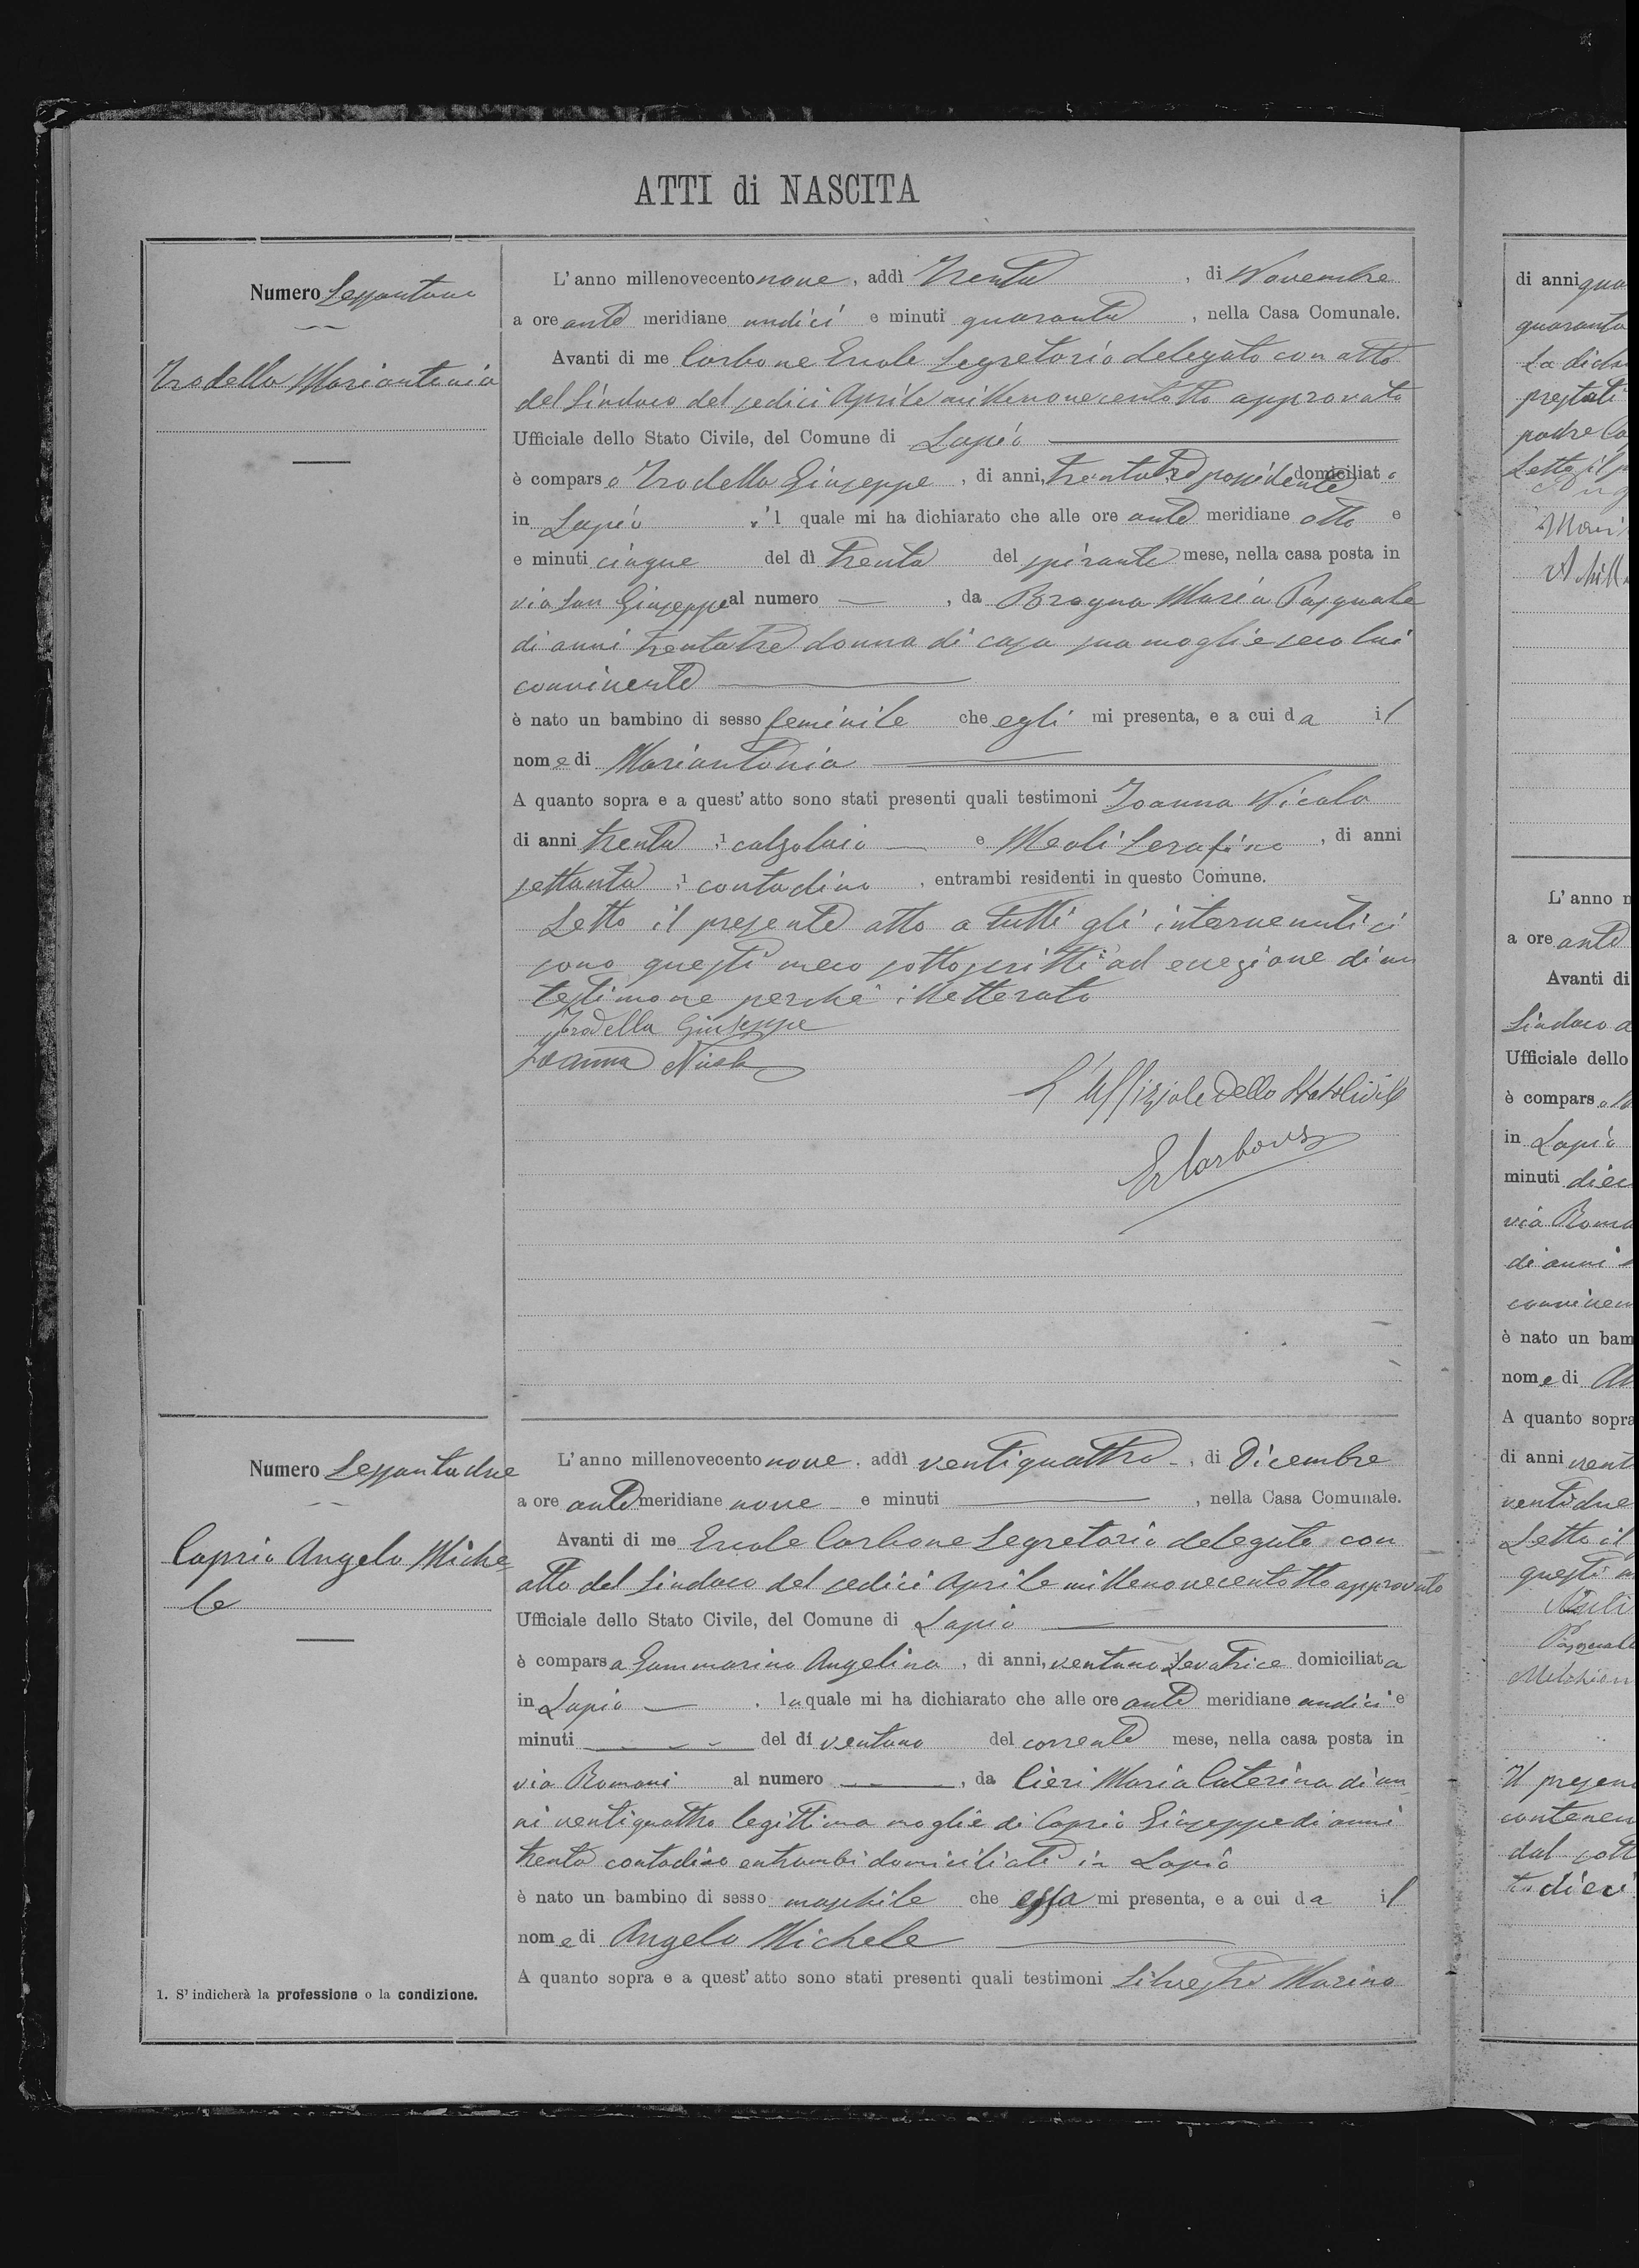 ATTI di NASCITA
Numero Sessantuno
Trodella Mariantonia
L'anno millenovecento nove, addì Trenta, di Novembre
a ore ante meridiane undici e minuti quaranta, nella Casa Comunale.
Avanti di me Carbone Ercole Segretario delegato con atto
del Sindaco del sedici Aprile millenovecentotto approvato
Ufficiale dello Stato Civile, del Comune di Lapio
è comparso Trodella Giuseppe, di anni, trentatre possidente domiciliato
in Lapio il quale mi ha dichiarato che alle ore ante meridiane otto e
e minuti cinque del dì trenta del spirante mese, nella casa posta in
via San Giuseppe al numero —, da Bragna Maria Pasquale
di anni trentatre donna di casa sua moglie seco lui
convivente
è nato un bambino di sesso feminile che egli mi presenta, e a cui da il
nome di Mariantonia
A quanto sopra e a quest'atto sono stati presenti quali testimoni Ioanna Nicola
di anni trenta, 1 calzolaio — e Meoli Serafino, di anni
settanta, 1 contadino, entrambi residenti in questo Comune.
Letto il presente atto a tutti gli intervenuti si
sono questi meco sottoscritti ad eccezione di un
testimone perchè illetterato
Trodella Giuseppe
Ioanna Nicola
L'Uffiziale dello Stato Civile
E. Carbone
Numero Sessantadue
Caprio Angelo Miche
le
L'anno millenovecento nove, addì ventiquattro, di Dicembre
a ore ante meridiane nove e minuti —, nella Casa Comunale.
Avanti di me Ercole Carbone Segretario delegato con
atto del Sindaco del sedici Aprile millenovecentotto approvato
Ufficiale dello Stato Civile, del Comune di Lapio
è comparsa Sammarino Angelina, di anni, ventuno Levatrice domiciliata
in Lapio —. la quale mi ha dichiarato che alle ore ante meridiane undici e
minuti — del dì ventuno del corrente mese, nella casa posta in
via Romani al numero —, da Cieri Maria Caterina di an
ni ventiquattro legittima moglie di Caprio Giuseppe di anni
trenta contadino entrambi domiciliati in Lapio
è nato un bambino di sesso maschile che essa mi presenta, e a cui da il
nome di Angelo Michele
A quanto sopra e a quest'atto sono stati presenti quali testimoni Silvestro Marino
1. S'indicherà la professione o la condizione.
di anni qua
quaranta
La dichi
prestati
padre Ca
Letto il p
Ang
Mari
Achill
L'anno
a ore ante
Avanti di
Sindaco
Ufficiale dello
è compars
in Lapio
minuti diec
via Roma
di anni
conviven
è nato un bam
nome di
A quanto sopra
di anni vent
ventidue
Letto il
questi m
Pasquale
Melchion
Il presen
contenen
dal sott
to dieci